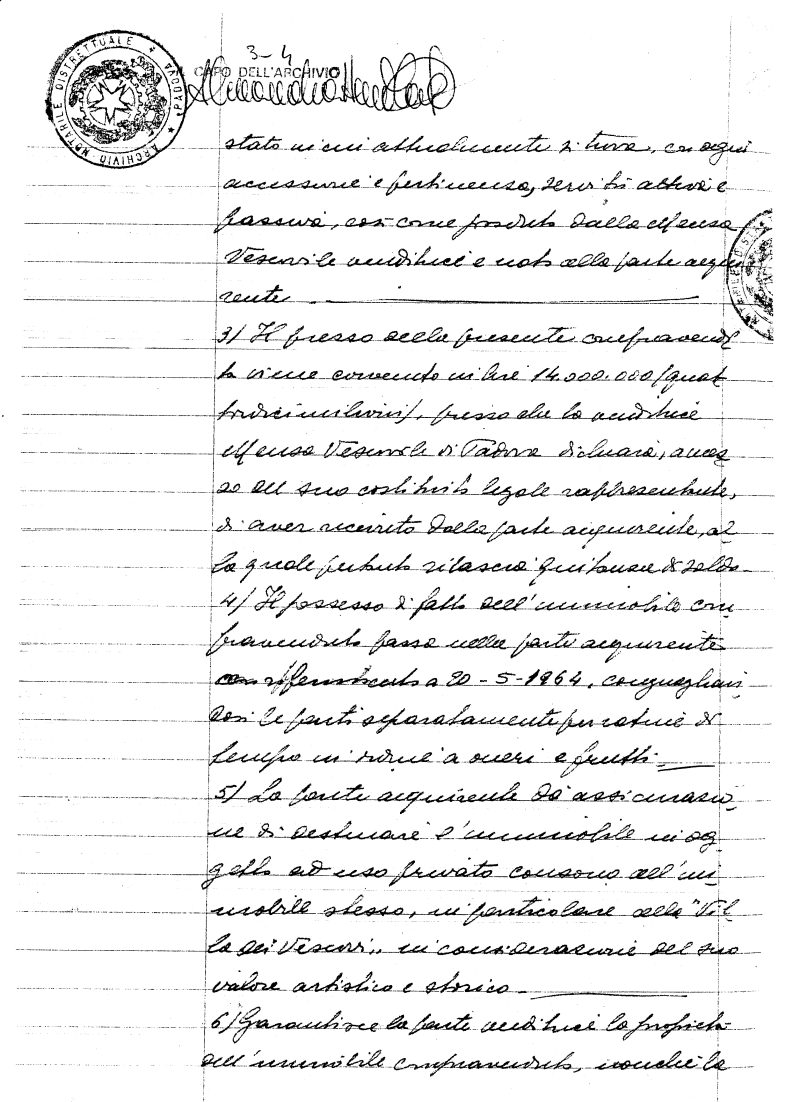 3-4
ARCHIVIO NOTARILE DISTRETTUALE * PADOVA *
IL CAPO DELL'ARCHIVIO
stato in cui attualmente si trova, con ogni
accessorio e pertinenza, servitù attiva e
passiva, così come goduto dalla Mensa
Vescovile venditrice e noto alla parte acqui
rente.
3/ Il prezzo della presente compravendi
ta viene convenuto in lire 14.000.000 (quat
tordicimilioni), prezzo che la venditrice
Mensa Vescovile di Padova dichiara, a mez
zo del suo costituito legale rappresentante,
di aver ricevuto dalla parte acquirente, al
la quale pertanto rilascia quitanza di saldo.
4/ Il possesso di fatto dell'immobile com
pravenduto passa nella parte acquirente
con riferimento a 20-5-1964, conguaglian
dosi le parti separatamente per ratine di
tempo in ordine a oneri e frutti.
5/ La parte acquirente dà assicurazio
ne di destinare l'immobile in og
getto ad uso privato consono all'im
mobile stesso, in particolare alla "Vil
la dei Vescovi", in considerazione del suo
valore artistico e storico.
6/ Garantisce la parte venditrice la proprietà
dell'immobile compravenduto, nonché la